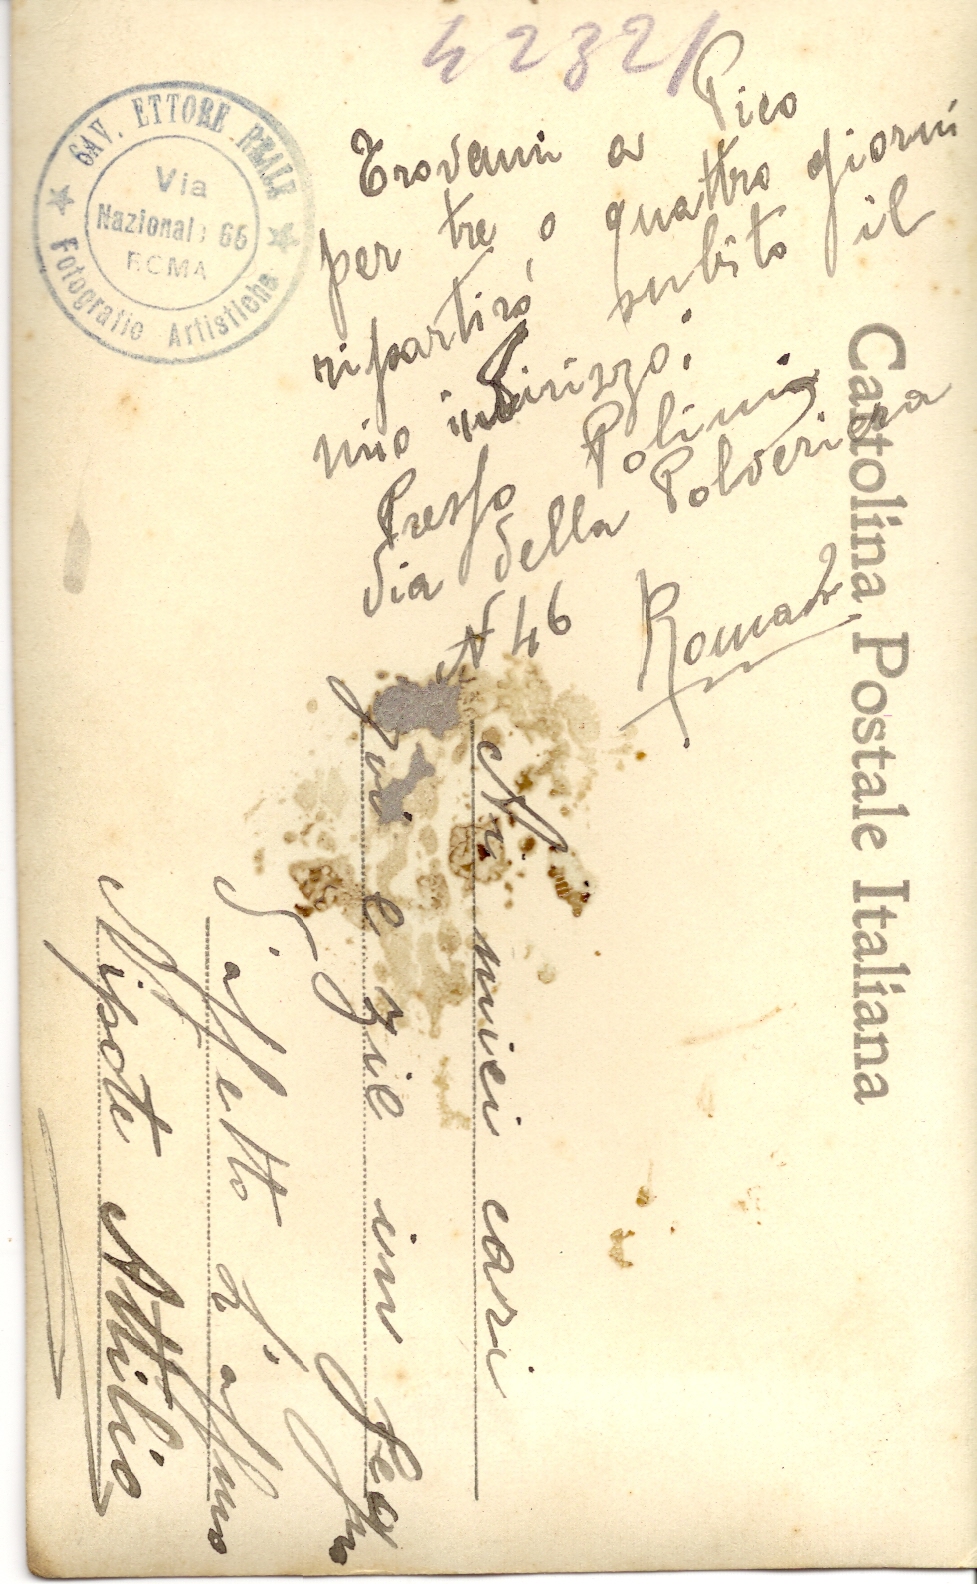 42321
CAV. ETTORE REALI
Via
Nazionale 66
ROMA
Fotografie Artistiche
Trovami a Pico
per tre o quattro giorni
ripartirò subito il
mio indirizzo:
Presso Polini
Via della Polveriera
N 46 Roma
Cartolina Postale Italiana
Ai miei cari
zii e zie in segno
D'affetto l'aff.mo
Nipote Attilio